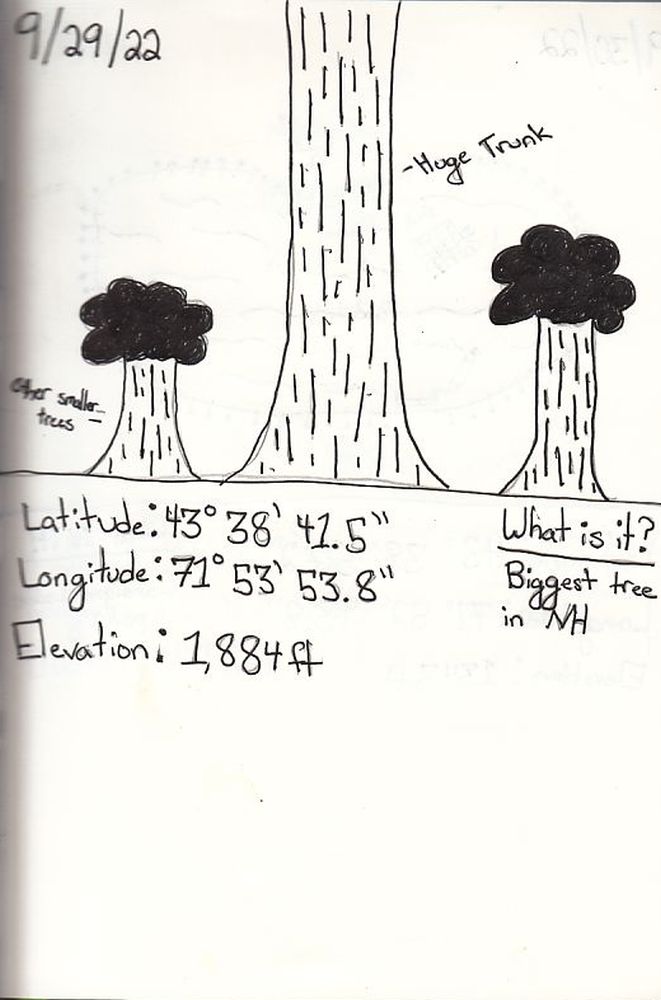 9/29/22
-Huge Trunk
Other smaller
trees -
Latitude: 43° 38' 41.5"
Longitude: 71° 53' 53.8"
Elevation: 1,884 ft
What is it?
Biggest tree
in NH